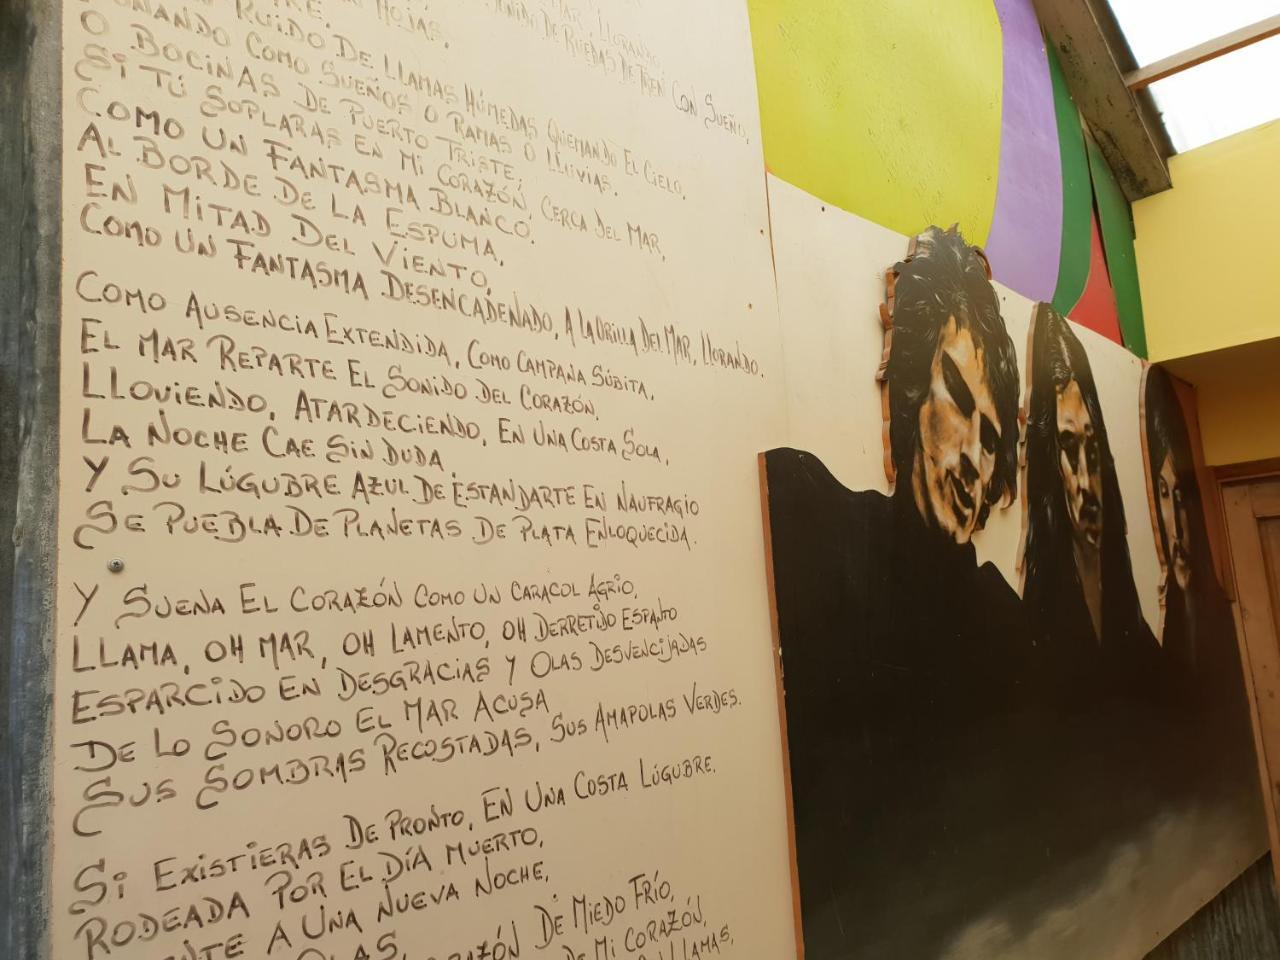 MAR, LLORANDO,
HOJAS,
SONIDO DE RUEDAS DE TREN CON SUEÑO,
RUIDO DE LLAMAS HÚMEDAS QUEMANDO EL CIELO,
SONANDO COMO SUEÑOS O RAMAS O LLUVIAS,
O BOCINAS DE PUERTO TRISTE,
SI TÚ SOPLARAS EN MI CORAZÓN, CERCA DEL MAR,
COMO UN FANTASMA BLANCO.
AL BORDE DE LA ESPUMA,
EN MITAD DEL VIENTO,
COMO UN FANTASMA DESENCADENADO, A LA ORILLA DEL MAR, LLORANDO.
COMO AUSENCIA EXTENDIDA, COMO CAMPANA SÚBITA,
EL MAR REPARTE EL SONIDO DEL CORAZÓN,
LLOVIENDO, ATARDECIENDO, EN UNA COSTA SOLA,
LA NOCHE CAE SIN DUDA,
Y SU LÚGUBRE AZUL DE ESTANDARTE EN NAUFRAGIO
SE PUEBLA DE PLANETAS DE PLATA ENLOQUECIDA.
Y SUENA EL CORAZÓN COMO UN CARACOL AGRIO,
LLAMA, OH MAR, OH LAMENTO, OH DERRETIDO ESPANTO
ESPARCIDO EN DESGRACIAS Y OLAS DESVENCIJADAS
DE LO SONORO EL MAR ACUSA
SUS SOMBRAS RECOSTADAS, SUS AMAPOLAS VERDES.
SI EXISTIERAS DE PRONTO, EN UNA COSTA LÚGUBRE,
RODEADA POR EL DÍA MUERTO,
A UNA NUEVA NOCHE,
OLAS,
DE MIEDO FRÍO,
DE MI CORAZÓN,
LLAMAS,